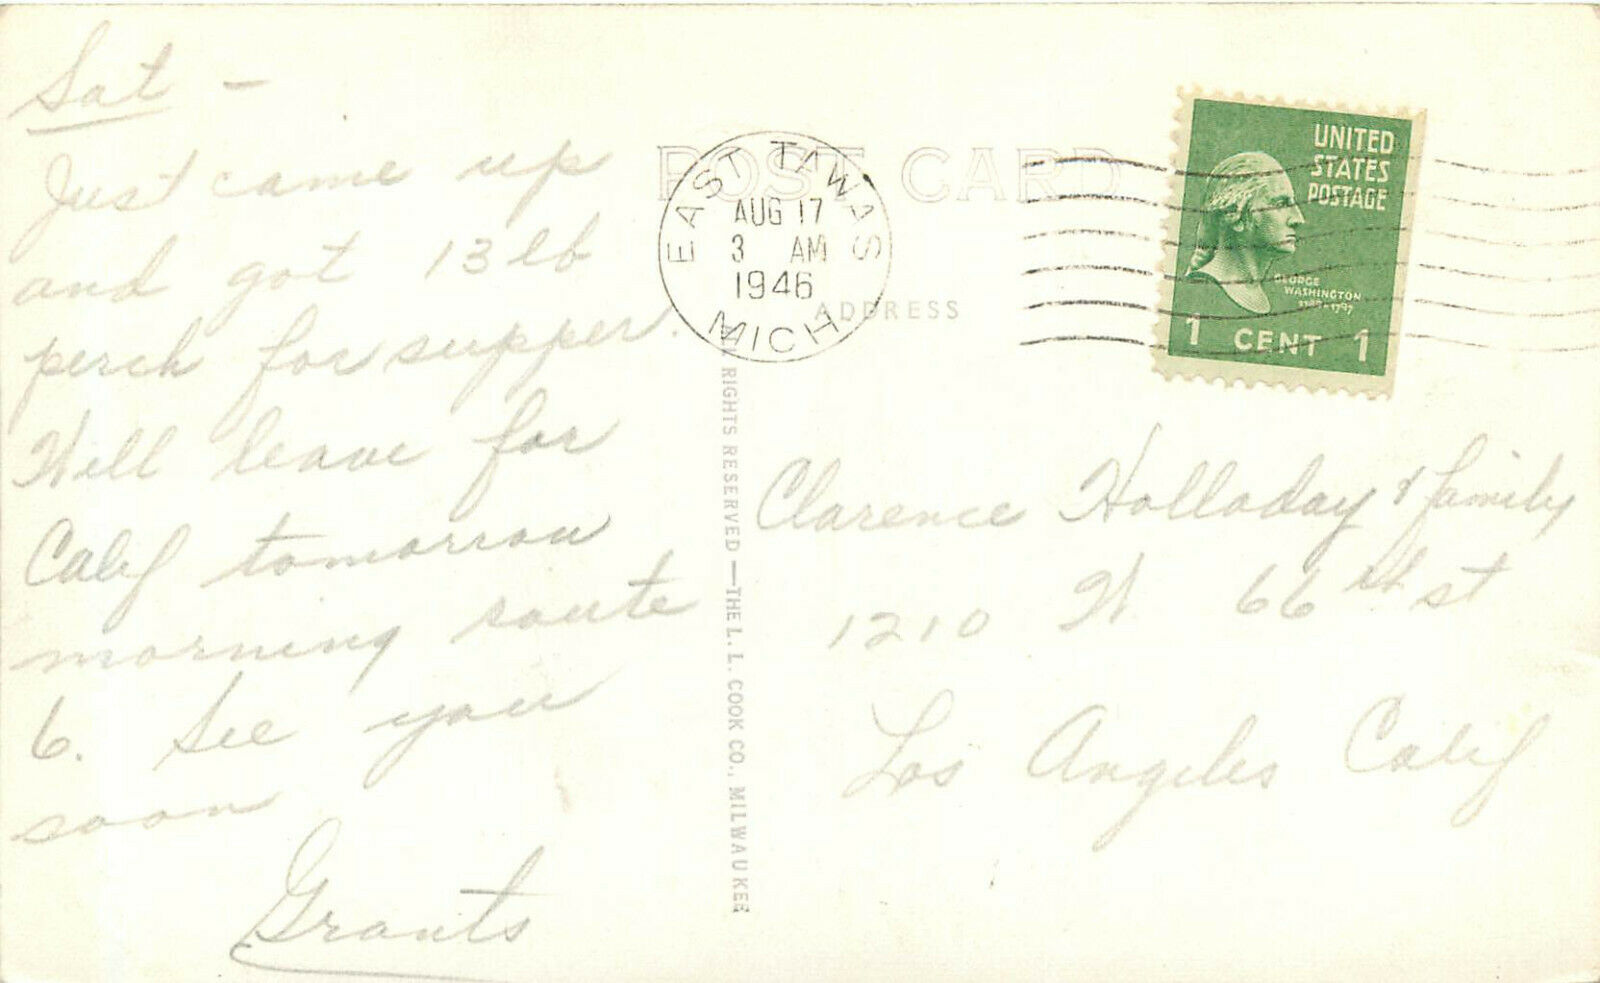 Sat -
Just came up
and got 13 lb
perch for supper.
Will leave for
Calif tomorrow
morning route
6. See you
soon
Grants
POST CARD
EAST TAWAS
AUG 17
3 AM
1946
MICH
ADDRESS
UNITED
STATES
POSTAGE
GEORGE
WASHINGTON
1789-1797
1 CENT 1
Clarence Holladay & family
1210 W. 66th st
Los Angeles Calif
ALL RIGHTS RESERVED—THE L. L. COOK CO., MILWAUKEE